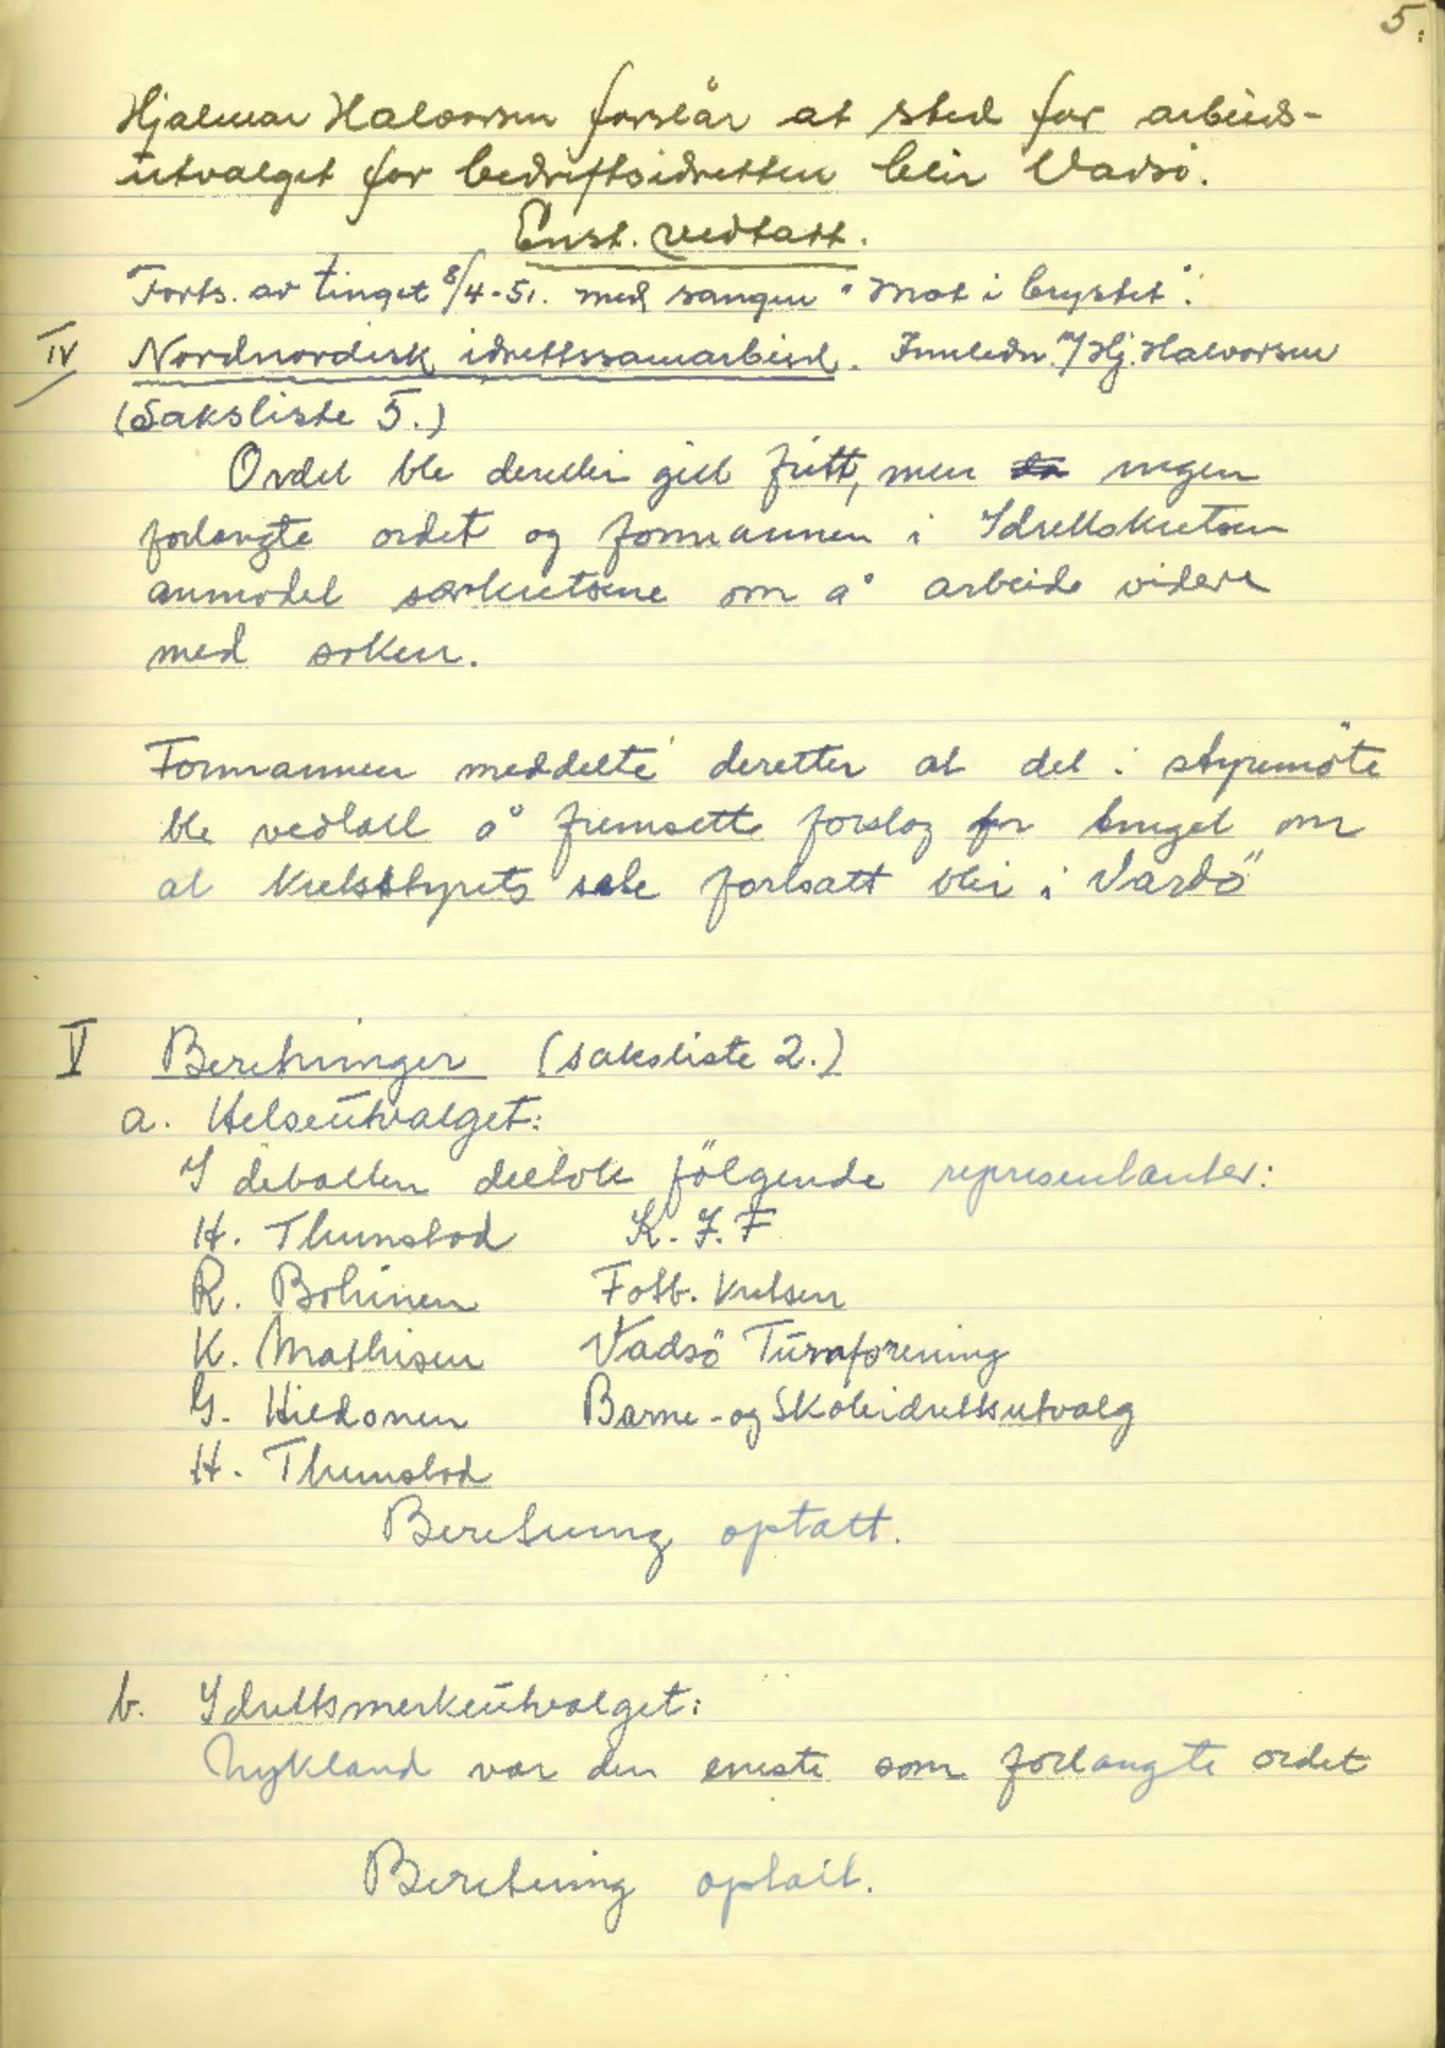 5.
Hjalmar Halvorsen forslår at sted for arbeids-
utvalget for bedriftsidretten blir Vadsö.
Enst. vedtatt.
Forts. av tinget 8/4-51. med sangen "Mot i brystet".
IV Nordnordisk idrettssamarbeid. Innledn. v/Hj. Halvorsen
(Saksliste 5.)
Ordet ble deretter gitt fritt, men ingen
forlangte ordet og formannen i Idrettskretsen
anmodet særkretsene om å arbeide videre
med saken.
Formannen meddelte deretter at det i styremöte
ble vedtatt å fremsette forslag for tinget om
at kretsstyrets sete fortsatt blir i Vardö
V Beretninger (saksliste 2.)
a. Helseutvalget:
I debatten deltok fölgende representanter:
H. Thunstad K.I.F
R. Bohinen Fotb. kretsen
K. Mathisen Vadsö Turnforening
G. Hildonen Barne-og Skoleidrettsutvalg
H. Thunstad
Beretning optatt.
b. Idrettsmerkeutvalget:
Nykland var den eneste som forlangte ordet
Beretning optatt.